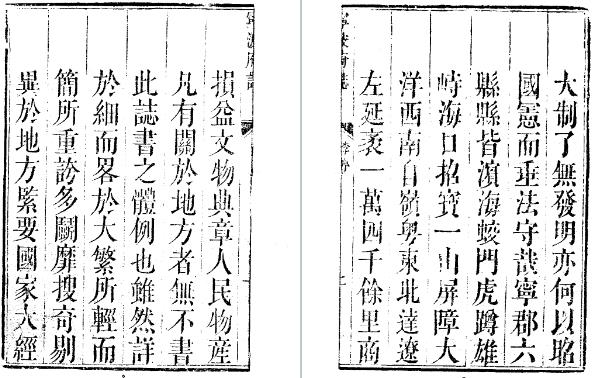 寧波府誌
損益文物典章人民物產
凡有關於地方者無不書
此誌書之體例也雖然詳
於細而畧於大繁所輕而
簡所重誇多鬭靡搜奇剔
異於地方緊要國家大經
大制了無發明亦何以昭
國憲而垂法守哉寧郡六
縣縣皆濱海蛟門虎蹲雄
峙海口招寶一山屏障大
洋西南自嶺粵東北達遼
左延袤一萬四千餘里商
寧波府誌